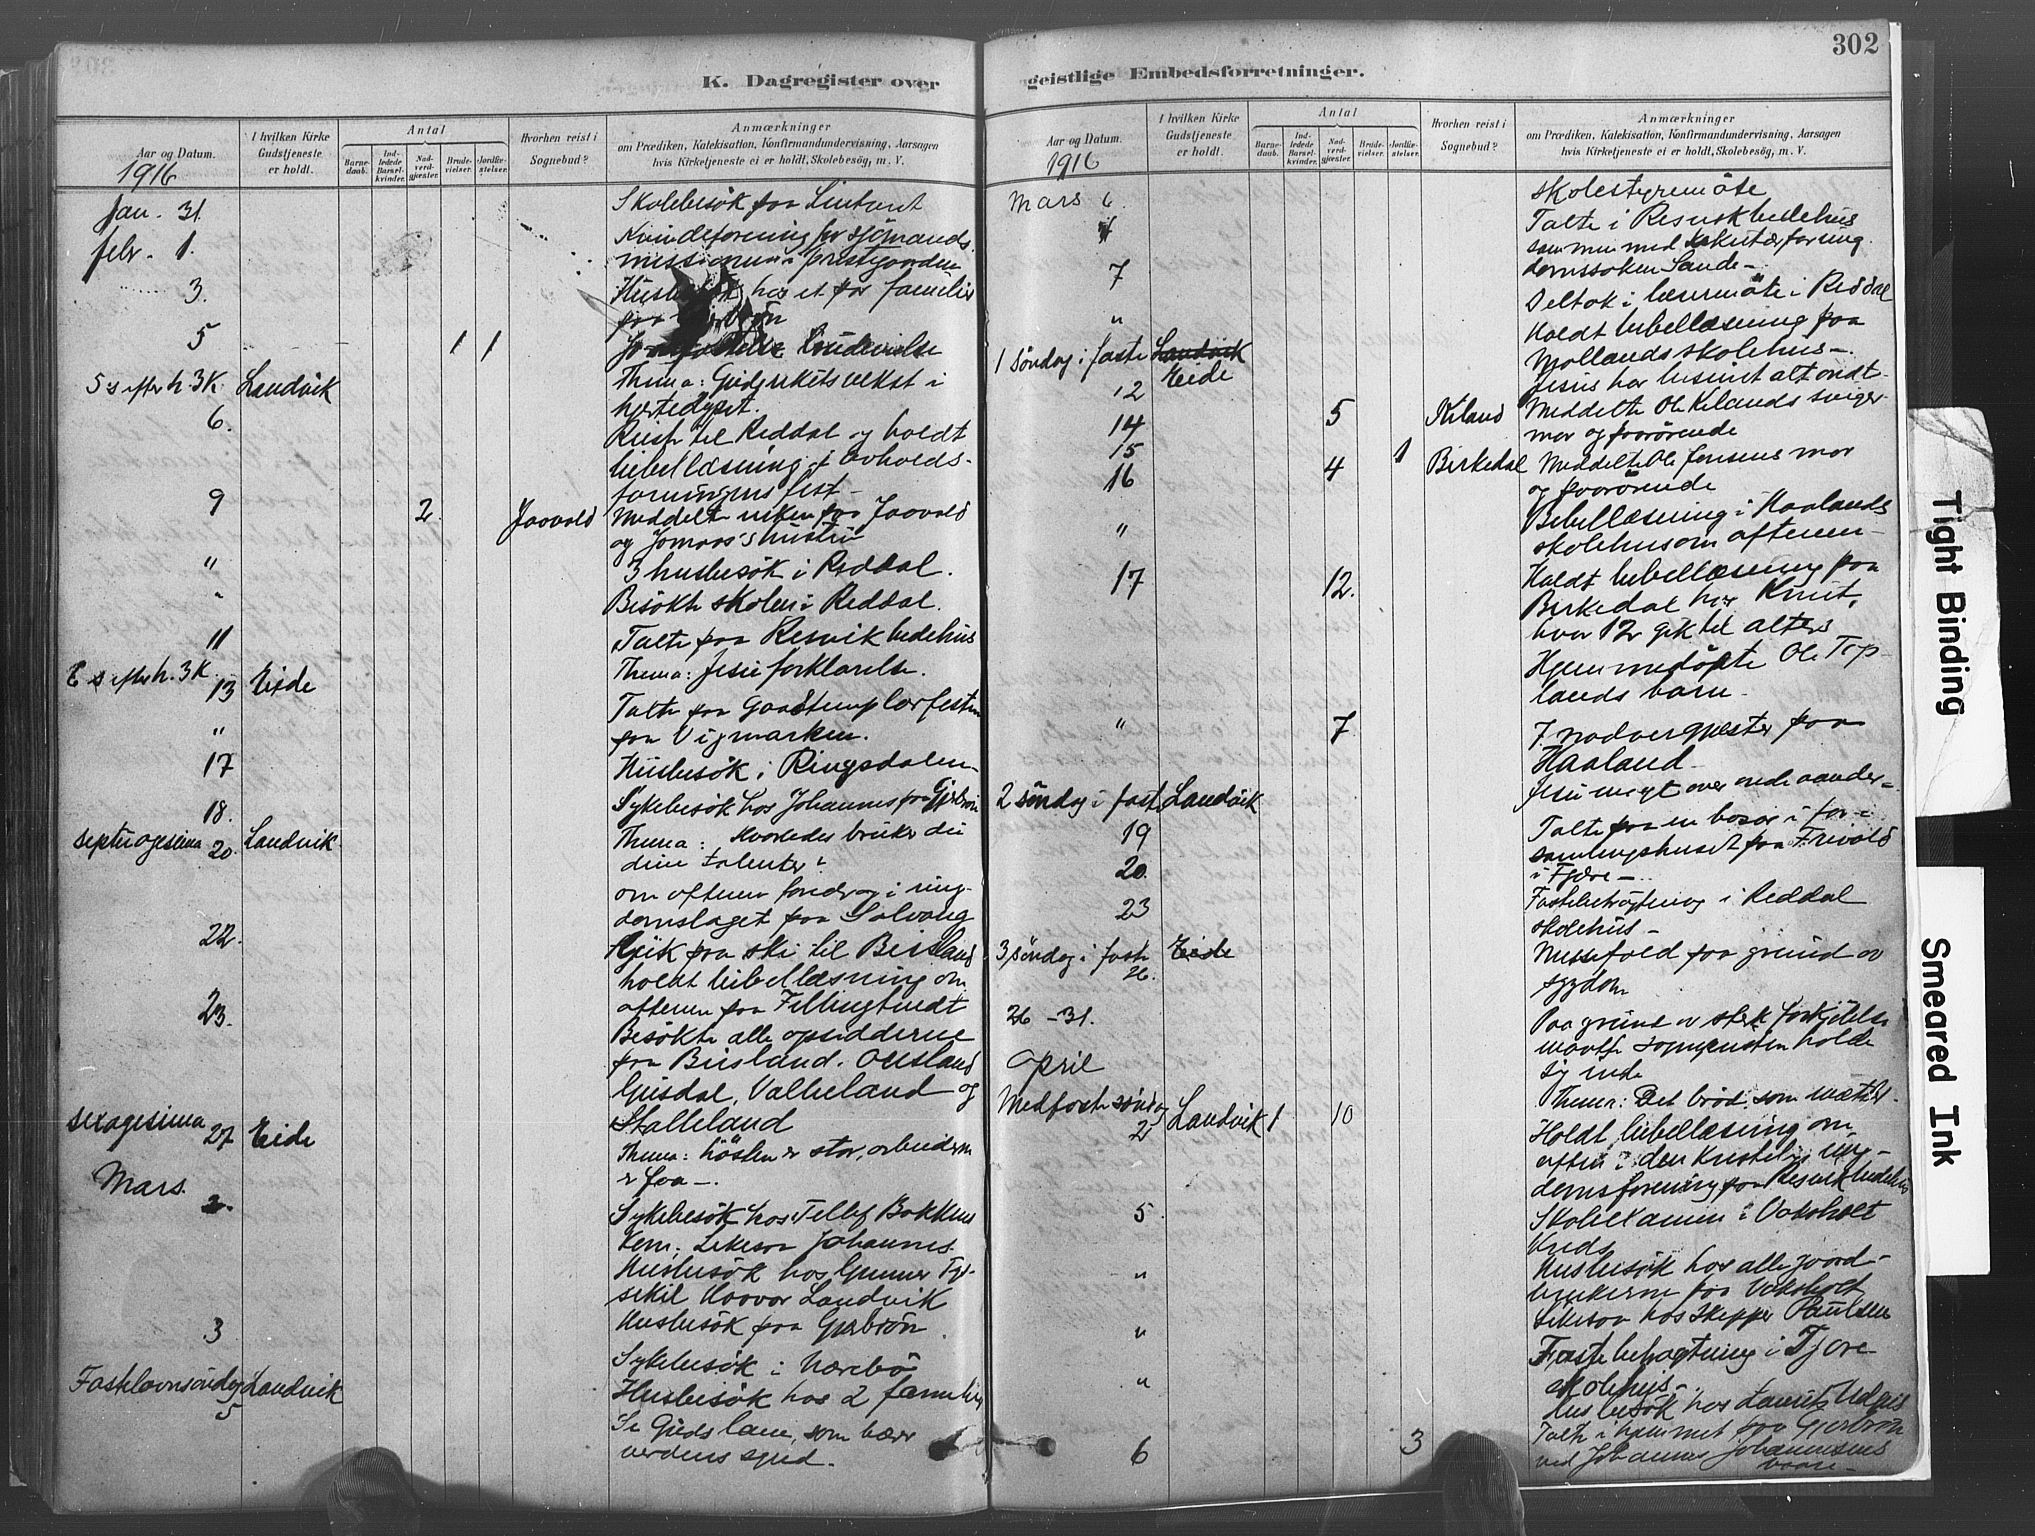 302
K. Dagregister over
geistlige Embedsforretninger.
Aar og Datum.
1916
I hvilken Kirke Gudstjeneste er holdt.
Antal
Barnedaab.
Indledede Barselkvinder.
Nadverdgjester.
Brudevielser.
Jordfæstelser.
Hvorhen reist i Sognebud?
Anmærkninger
om Prædiken, Katekisation, Konfirmandundervisning, Aarsagen
hvis Kirketjeneste ei er holdt, Skolebesøg, m. V.
Jan. 31. Skolebesök paa
febr. 1. Kvindeforening for sjömands
missionen i prestegaarden
3. Husbesök hos et par familier
paa
5 1 1 brudevielse
5 s efter h. 3 K. Landvik Thema: Gudsrikets vekst i
hjertedypet.
6. Reiste til Reddal og holdt
bibellæsning i avholds-
foreningens fest -
9 2 Jaavold Meddelte enken paa Jaavold
og hustru
" 3 husbesök i Reddal.
" Besökte skolen i Reddal.
11 Talte paa Resvik bedehus
6 s efter h. 3 K. 13 Eide Thema: Jesu forklarelse.
" Talte paa Goodtemplarfesten
paa Vigmarken.
17 Husbesök i Ringsdalen -
18. Sykebesök hos Johannes paa Gjerbrön
septuagesima 20. Landvik Thema: Hvorledes bruker du
dine talenter?
om aftenen foredrag i ung-
domslaget paa Solvang
22. Gjik paa ski til Beisland
holdt bibellæsning om
aftenen paa
23. Besökte alle opsidderne
paa Beisland, Ousland
Gusdal, Valleland og
Stalleland
sexagesima 27 Eide Thema: Hösten er stor, arbeiderne
er faa -.
Mars.
2. Sykebesök hos Tellef Bakken
Johannes.
Husbesök hos Gunner
Haavor Landvik
3 Husbesök paa Gjerbrön.
Sykebesök i
Fastelavnsöndag 5 Landvik Husbesök hos 2 familier
Se Guds lam, som bær
verdens synd.
Aar og Datum.
1916
I hvilken Kirke Gudstjeneste er holdt.
Antal
Barnedaab.
Indledede Barselkvinder.
Nadverdgjester.
Brudevielser.
Jordfæstelser.
Hvorhen reist i Sognebud?
Anmærkninger
om Prædiken, Katekisation, Konfirmandundervisning, Aarsagen
hvis Kirketjeneste ei er holdt, Skolebesøg, m. V.
Mars 6. skolestyremöte
Talte i Resvik bedehus
sammen med sekretær for ung
domssaken Sande -
7 Deltok i læsermöte i Reddal
" Holdt bibellæsning paa
Mollands skolehus -.
1 söndag i faste 12 Landvik Eide Jesus har beseiret alt ondt -
14 5 Kiland Meddelte Ole Kilands sviger-
mor og paarörende
15 1
16 4 Birkedal Meddelte Ole Jensens mor
og paarörende
" Bibellæsning i Haalands
skolehus om aftenen -
17 12. Holdt bibellæsning paa
Birkedal hos Knut,
hvor 12 gik til alters
Hjemmedöpte Ole Top-
lands barn -
" 7 7 nadvergjester paa
Haaland -
2 söndag i faste Landvik Jesu magt over onde aander -
19 Talte paa en basar i for-
samlingshuset paa Frivold
20. i Fjære -
23 Fastebetragtning i Reddal
skolehus -
3 söndag i faste 26. Eide Messefald paa grund av
sygdom
26 - 31. Paa grund av sterk forkjölelse
maatte sognepresten holde
sig inde
April
Medfaste söndag 2 Landvik 1 10 Thema: Det bröd som mætter -
Holdt bibellæsning om
aften i den kristelig ung-
domsforening paa Resvik bedehus
5. Skoleexamen i Vaksholt
kreds
" Husbesök hos alle gaard-
brukerne paa Vaksholt
" Likesaa hos skipper Paulsen
" Fastebetragtning i Tjore
skolehus -
Husbesök hos
6 3 Talte i hjemmet paa Gjerbrön
ved Johannes Johannesens
baare -
Tight Binding
Smeared Ink